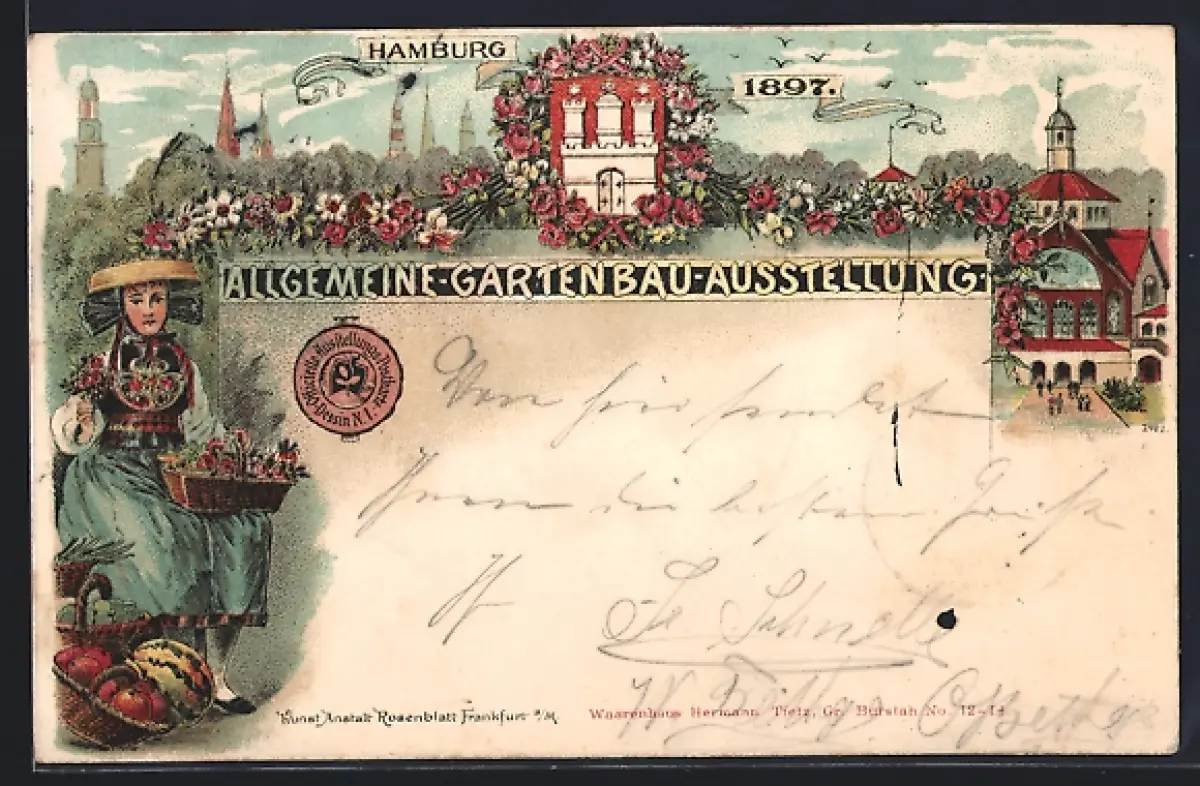 HAMBURG
1897.
ALLGEMEINE-GARTENBAU-AUSSTELLUNG.
Officielle Ausstellungs-Postkarte
Dessin N. 1.
Von hier sendet
Ihnen die besten Grüße
Fr. Schnelle
Kunst Anstalt Rosenblatt Frankfurt a/M.
Waarenhaus Hermann Tietz, Gr. Burstah No. 12-14